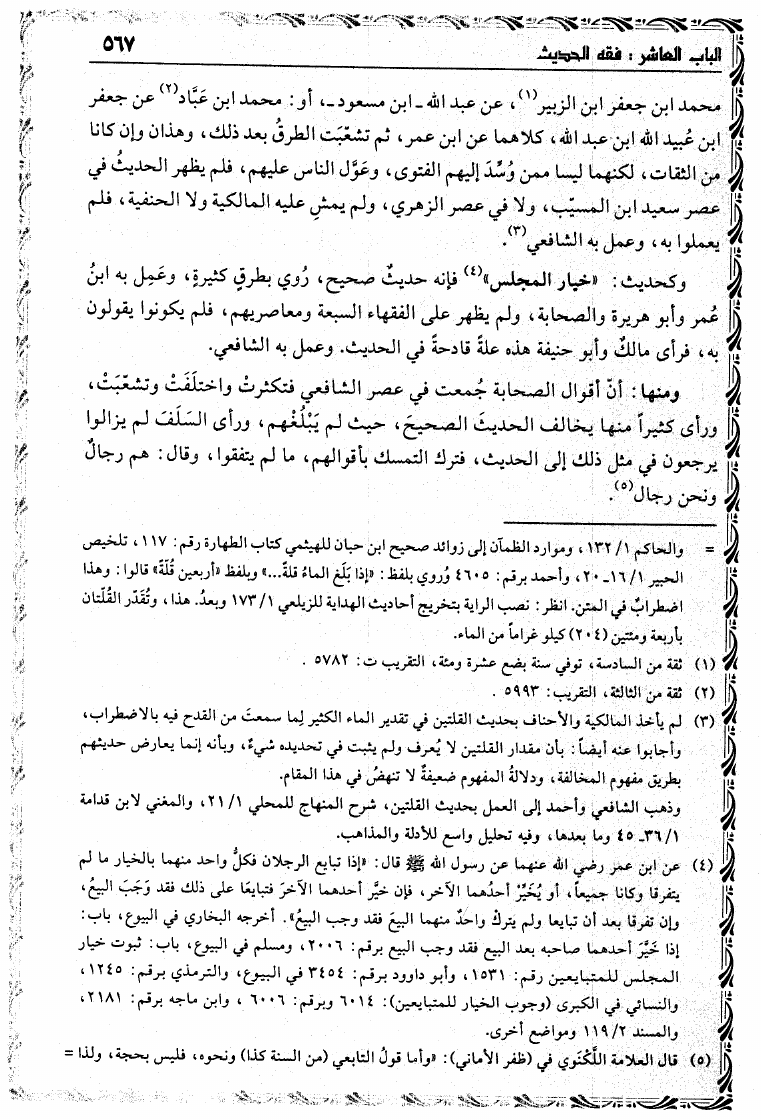 الباب العاشر : فقه الحديث
٥٦٧
محمد ابن جعفر ابن الزبير(١)، عن عبد الله ـ ابن مسعود ـ، أو: محمد ابن عَبَّاد(٢) عن جعفر
ابن عُبيد الله ابن عبد الله، كلاهما عن ابن عمر، ثم تشعّبَت الطرقُ بعد ذلك، وهذان وإن كانا
من الثقات، لكنهما ليسا ممن وُسِّدَ إليهم الفتوى، وعَوَّل الناس عليهم، فلم يظهر الحديثُ في
عصر سعيد ابن المسيّب، ولا في عصر الزهري، ولم يمشِ عليه المالكية ولا الحنفية، فلم
يعملوا به، وعمل به الشافعي(٣).
وكحديث: «خيار المجلس»(٤) فإنه حديثٌ صحيح، رُوي بطرقٍ كثيرةٍ، وعَمِل به ابنُ
عُمر وأبو هريرة والصحابة، ولم يظهر على الفقهاء السبعة ومعاصريهم، فلم يكونوا يقولون
به، فرأى مالكٌ وأبو حنيفة هذه علةً قادحةً في الحديث. وعمل به الشافعي.
ومنها: أنّ أقوال الصحابة جُمعت في عصر الشافعي فتكثرتْ واختلَفَتْ وتشعّبَتْ،
ورأى كثيراً منها يخالف الحديثَ الصحيحَ، حيث لم يَبْلُغْهم، ورأى السَلَفَ لم يزالوا
يرجعون في مثل ذلك إلى الحديث، فترك التمسك بأقوالهم، ما لم يتفقوا، وقال: هم رجالٌ
ونحن رجال(٥).
= والحاكم ١/ ١٣٢، وموارد الظمآن إلى زوائد صحيح ابن حبان للهيثمي كتاب الطهارة رقم: ١١٧، تلخيص
الحبير ١/ ١٦-٢٠، وأحمد برقم: ٤٦٠٥ وُروي بلفظ: «إذا بَلَغ الماءُ قلةً...» وبلفظ «أربعين قُلّةً» قالوا: وهذا
اضطرابٌ في المتن. انظر: نصب الراية بتخريج أحاديث الهداية للزيلعي ١/ ١٧٣ وبعدُ. هذا، وتُقَدّر القُلّتان
بأربعة ومئتين (٢٠٤) كيلو غراماً من الماء.
(١) ثقة من السادسة، توفي سنة بضع عشرة ومئة، التقريب ت: ٥٧٨٢ .
(٢) ثقة من الثالثة، التقريب: ٥٩٩٣ .
(٣) لم يأخذ المالكية والأحناف بحديث القلتين في تقدير الماء الكثير لِما سمعتَ من القدح فيه بالاضطراب،
وأجابوا عنه أيضاً: بأن مقدار القلتين لا يُعرف ولم يثبت في تحديده شيءٌ، وبأنه إنما يعارض حديثهم
بطريق مفهوم المخالفة، ودلالةُ المفهوم ضعيفةٌ لا تنهضُ في هذا المقام.
وذهب الشافعي وأحمد إلى العمل بحديث القلتين، شرح المنهاج للمحلي ١/ ٢١، والمغني لابن قدامة
١/ ٣٦ـ ٤٥ وما بعدها، وفيه تحليل واسع للأدلة والمذاهب.
(٤) عن ابن عمر رضي الله عنهما عن رسول الله ﷺ قال: «إذا تبايع الرجلان فكلُّ واحد منهما بالخيار ما لم
يتفرقا وكانا جميعاً، أو يُخَيِّرْ أحدُهما الآخر، فإن خيَّر أحدهما الآخرَ فتبايعَا على ذلك فقد وَجَبَ البيعُ،
وإن تفرقا بعد أن تبايعا ولم يتركْ واحدٌ منهما البيعَ فقد وجب البيعُ». أخرجه البخاري في البيوع، باب:
إذا خَيَّرَ أحدهما صاحبه بعد البيع فقد وجب البيع برقم: ٢٠٠٦، ومسلم في البيوع، باب: ثبوت خيار
المجلس للمتبايعين رقم: ١٥٣١، وأبو داوود برقم: ٣٤٥٤ في البيوع، والترمذي برقم: ١٢٤٥،
والنسائي في الكبرى (وجوب الخيار للمتبايعين): ٦٠١٤ وبرقم: ٦٠٠٦ ، وابن ماجه برقم: ٢١٨١،
والمسند ٢/ ١١٩ ومواضع أخرى.
(٥) قال العلامة اللَّكْنَوي في (ظفر الأماني): «وأما قولُ التابعي (من السنة كذا) ونحوه، فليس بحجة، ولذا =